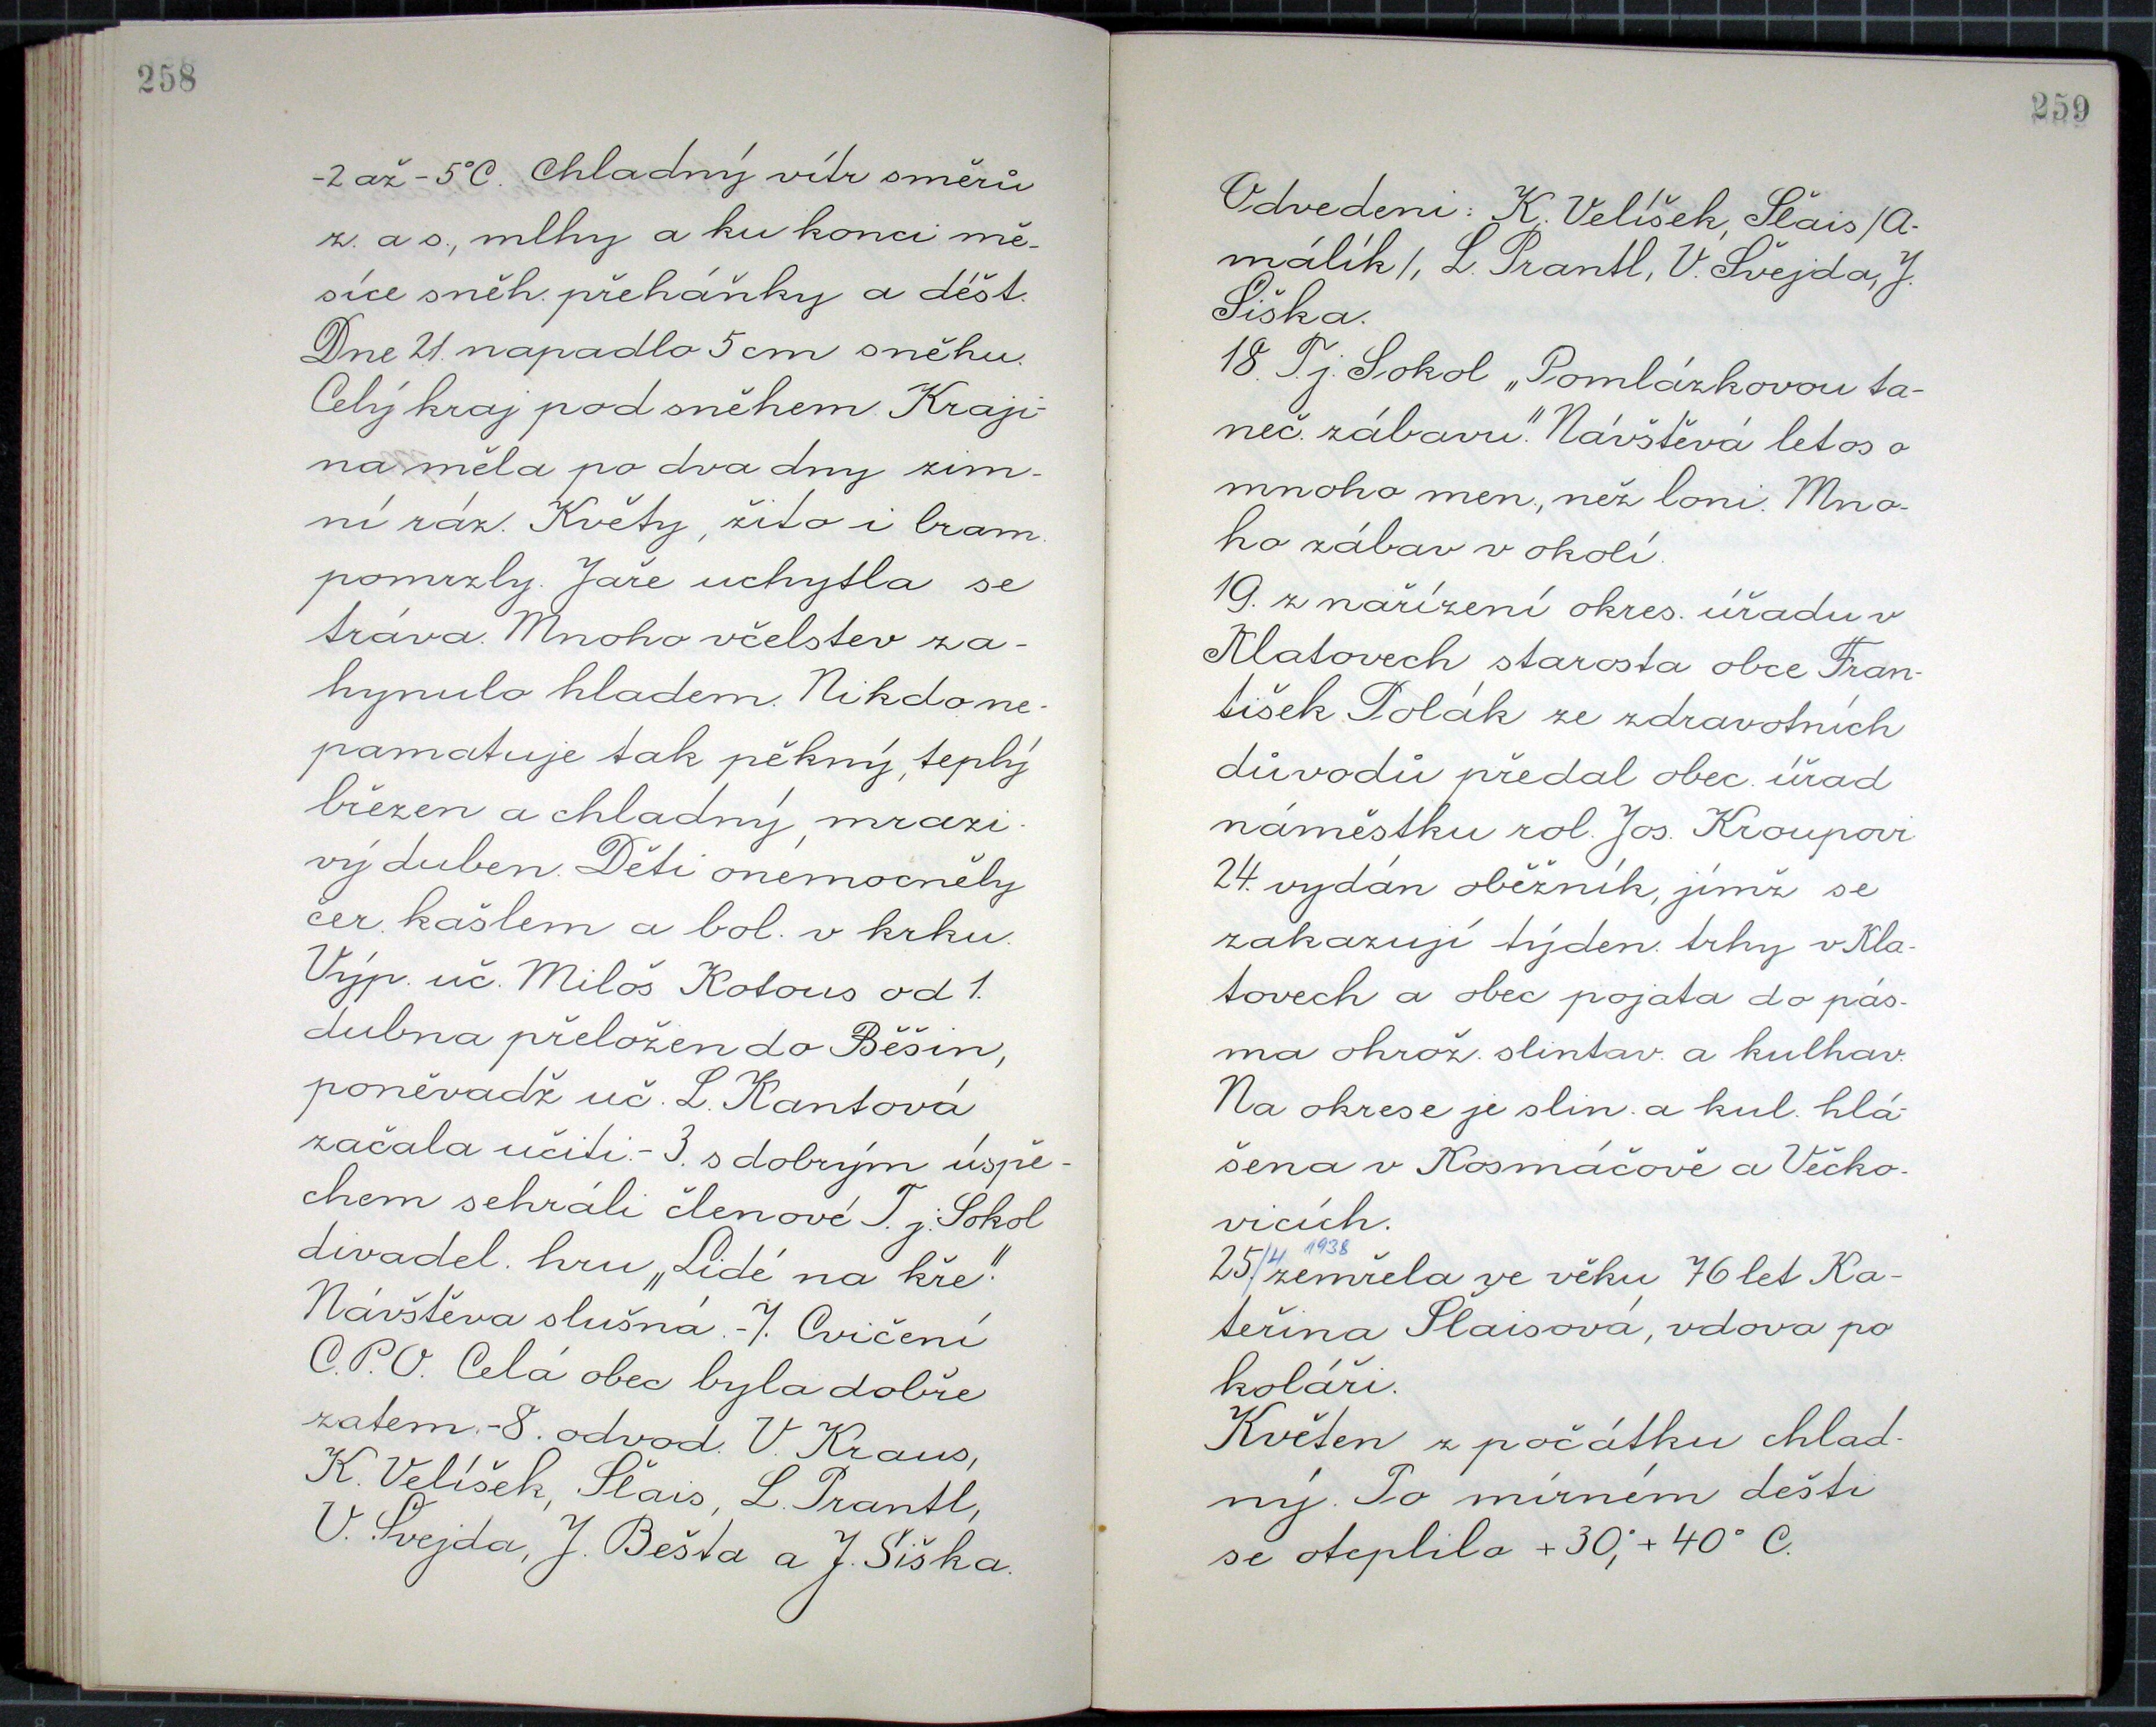 258
-2 až -5°C. Chladný vítr směrů
z. a s., mlhy a ku konci mě-
síce sněh. přeháňky a déšt.
Dne 21. napadlo 5 cm sněhu.
Celý kraj pod sněhem. Kraji-
na měla po dva dny zim-
ní ráz. Květy, žito i bram.
pomrzly. Jaře uchytla se
tráva. Mnoho včelstev za-
hynulo hladem. Nikdo ne-
pamatuje tak pěkný, teplý
březen a chladný, mrazi-
vý duben. Děti onemocněly
čer. kašlem a bol. v krku.
Výp. uč. Miloš Kotous od 1.
dubna přeložen do Běšin,
poněvadž uč. L. Kantová
začala učiti. - 3. s dobrým úspě-
chem sehráli členové T. j. Sokol
divadel. hru „Lidé na kře".
Návštěva slušná. - 7. Cvičení
C.P.O. Celá obec byla dobře
zatem. - 8. odvod. V. Kraus,
K. Velíšek, Šlais, L. Prantl,
V. Švejda, J. Bešta a J. Šiška.
259
Odvedeni: K. Velíšek, Šlais /A-
málík/, L. Prantl, V. Švejda, J.
Šiška.
18. T. j. Sokol „Pomlázkovou ta-
neč. zábavu." Návštěvá letos o
mnoho men., než loni. Mno-
ho zábav v okolí.
19. z nařízení okres. úřadu v
Klatovech starosta obce Fran-
tišek Polák ze zdravotních
důvodů předal obec. úřad
náměstku rol. Jos. Kroupovi
24. vydán oběžník, jímž se
zakazují týden. trhy v Kla-
tovech a obec pojata do pás-
ma ohrož. slintav. a kulhav.
Na okrese je slin. a kul. hlá-
šena v Kosmáčově a Věčko-
vicích.
25/4 1938 zemřela ve věku 76 let Ka-
teřina Šlaisová, vdova po
koláři.
Květen z počátku chlad-
ný. Po mírném dešti
se oteplilo +30°, +40° C.